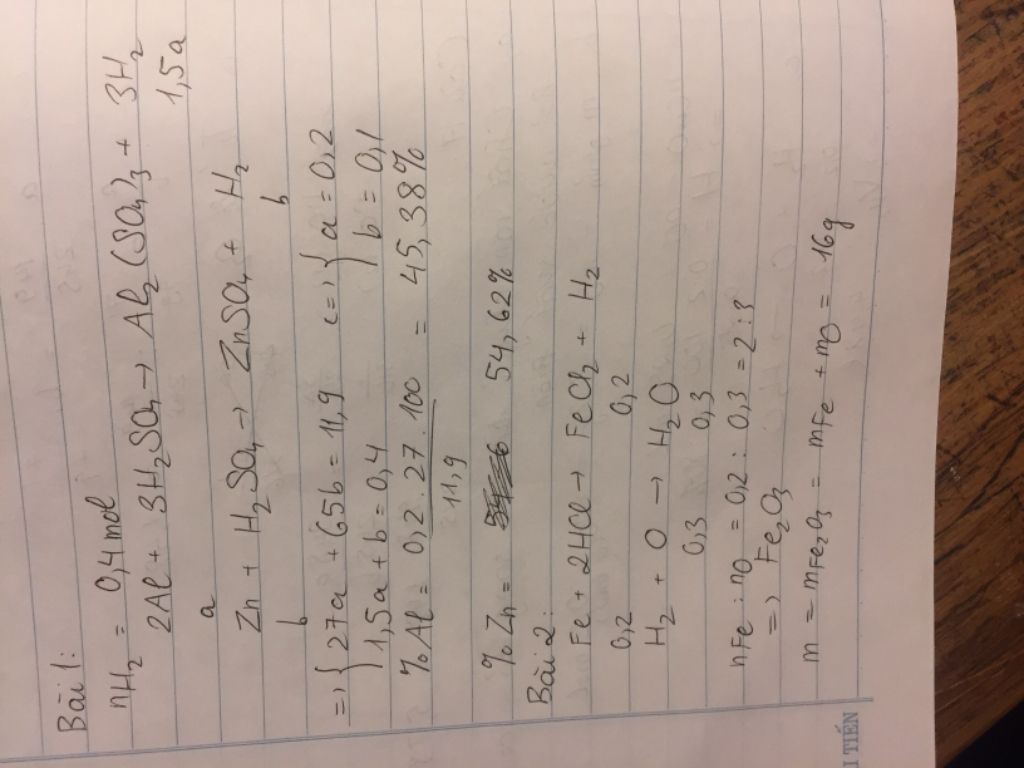 Bài 1:
nH2 = 0,4 mol
2Al + 3H2SO4 → Al2(SO4)3 + 3H2
a 1,5a
Zn + H2SO4 → ZnSO4 + H2
b b
=> { 27a + 65b = 11,9 <=> { a = 0,2
1,5a + b = 0,4 b = 0,1
% Al = 0,2 . 27 . 100 = 45,38%
11,9
% Zn = 54,62%
Bài 2:
Fe + 2HCl → FeCl2 + H2
0,2 0,2
H2 + O → H2O
0,3 0,3
nFe : nO = 0,2 : 0,3 = 2 : 3
=> Fe2O3
m = mFe2O3 = mFe + mO = 16g
I TIẾN